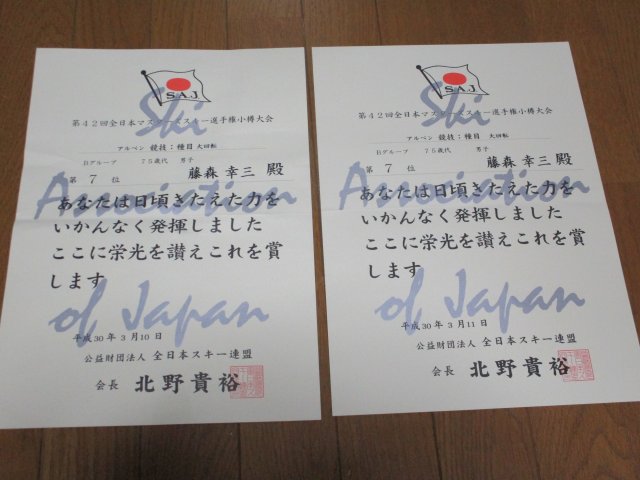 S.A.J
Ski
Association
of Japan
第42回全日本マスターズスキー選手権小樽大会
アルペン 競技:種目 大回転
Bグループ 75歳代 男子
第 7 位 藤森 幸三 殿
あなたは日頃きたえた力を
いかんなく発揮しました
ここに栄光を讃えこれを賞
します
平成30年3月10日
公益財団法人 全日本スキー連盟
会長 北野貴裕
S.A.J
Ski
Association
of Japan
第42回全日本マスターズスキー選手権小樽大会
アルペン 競技:種目 大回転
Bグループ 75歳代 男子
第 7 位 藤森 幸三 殿
あなたは日頃きたえた力を
いかんなく発揮しました
ここに栄光を讃えこれを賞
します
平成30年3月11日
公益財団法人 全日本スキー連盟
会長 北野貴裕